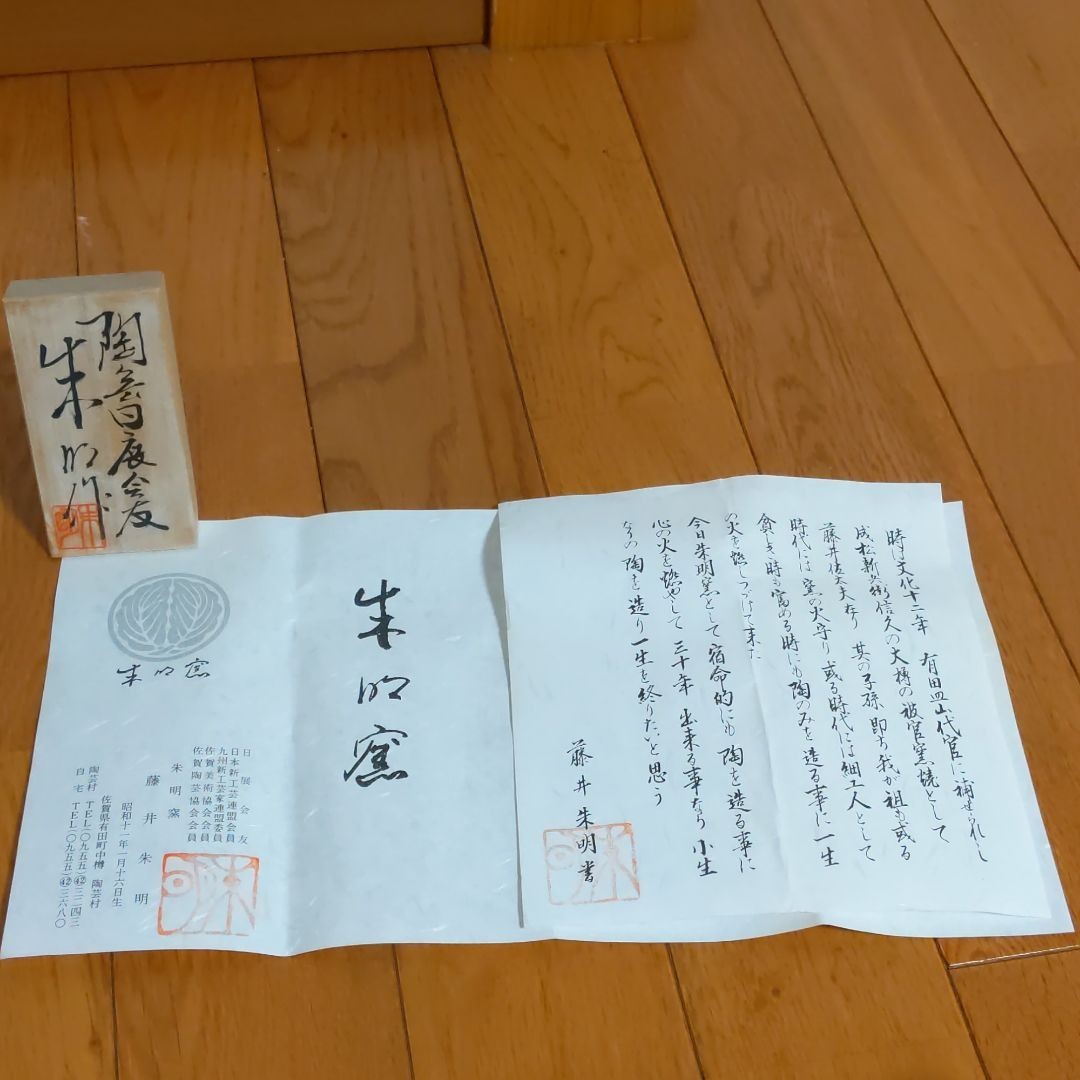 陶 展会友
朱明作
朱明窯
朱明窯
日展会友
日本新工芸連盟会員
九州新工芸家連盟委員
佐賀美術協会会員
佐賀陶芸協会会員
朱明窯
藤井朱明
昭和十一年一月十六日生
佐賀県有田町中樽 陶芸村
陶芸村 TEL(〇九五五)㊷三二四三
自宅 TEL(〇九五五)㊷三六八〇
時は文化十二年 有田皿山代官に補せられし
成松新兵衛信久の大樽の被官窯焼として
藤井佐太夫在り 其の子孫 即ち我が祖も或る
時代には窯の火守り 或る時代には細工人として
貧しき時も富める時にも陶のみを造る事に一生
の火を燃しつづけて来た
今日朱明窯として宿命的にも 陶を造る事に
心の火を燃やして 三十年 出来る事なら 小生
なりの陶を造り 一生を終りたいと思う
藤井朱明書